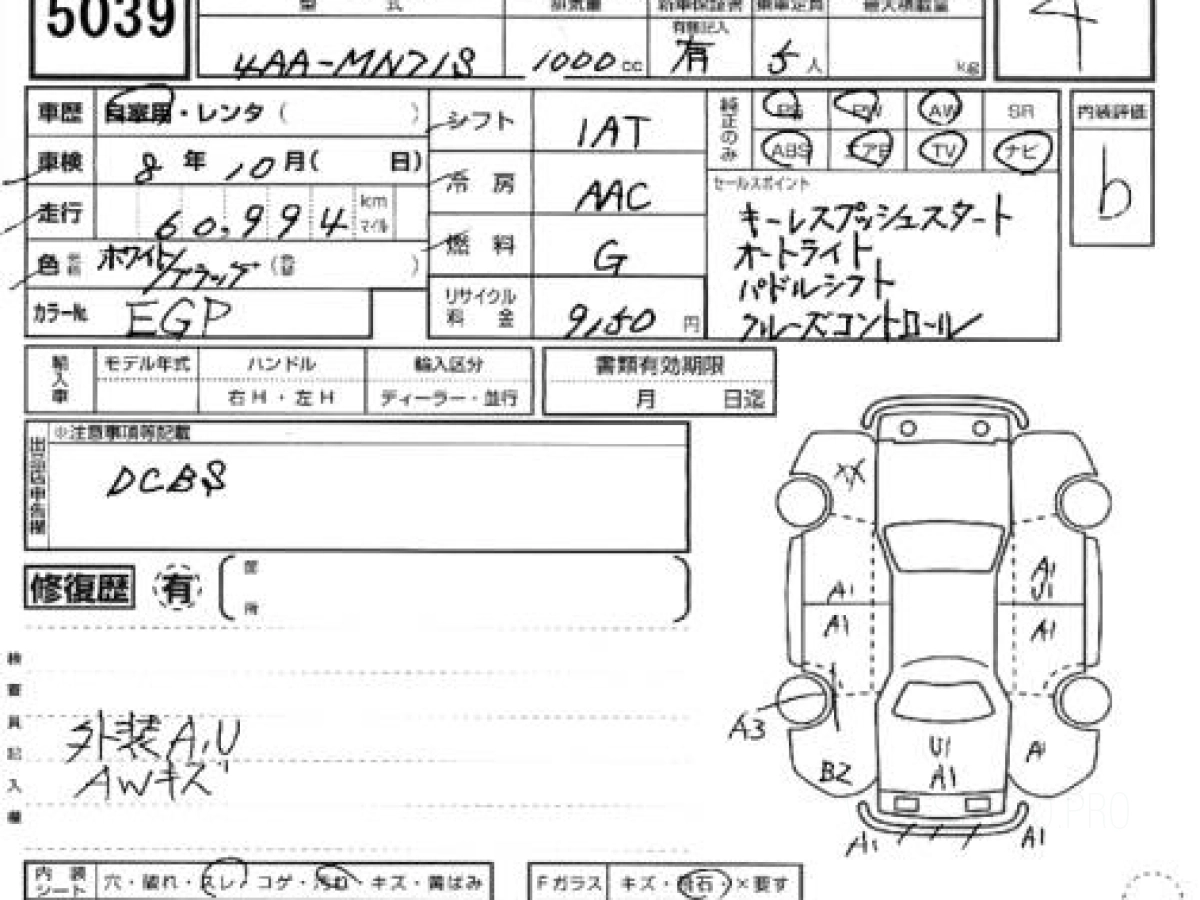 5039
型 式 排気量 新車保証書 乗車定員 最大積載量
有無記入
4AA-MN71S 1000cc 有 5人 kg
4
車歴 自家用・レンタ( )
車検 8年10月( 日)
走行 60,994 km マイル
色 ホワイト/ブラック ( )
カラー№ EGP
シフト IAT
冷房 AAC
燃料 G
リサイクル料金 9,150円
純正のみ PS PW AW SR
ABS エアB TV ナビ
セールスポイント
キーレスプッシュスタート
オートライト
パドルシフト
クルーズコントロール
内装評価
b
輸入車 モデル年式 ハンドル 輸入区分
右H・左H ディーラー・並行
書類有効期限
月 日迄
出品店申告欄
※注意事項等記載
DCBS
修復歴 有
箇所
検査員記入欄
外装A,U
AWキズ
XX
A1
A1
A1
U1
A1
A3
B2
U1
A1
A1
A1
A1
PRO
内装シート 穴・破れ・スレ・コゲ・汚れ・キズ・黄ばみ
Fガラス キズ・飛石・×要す